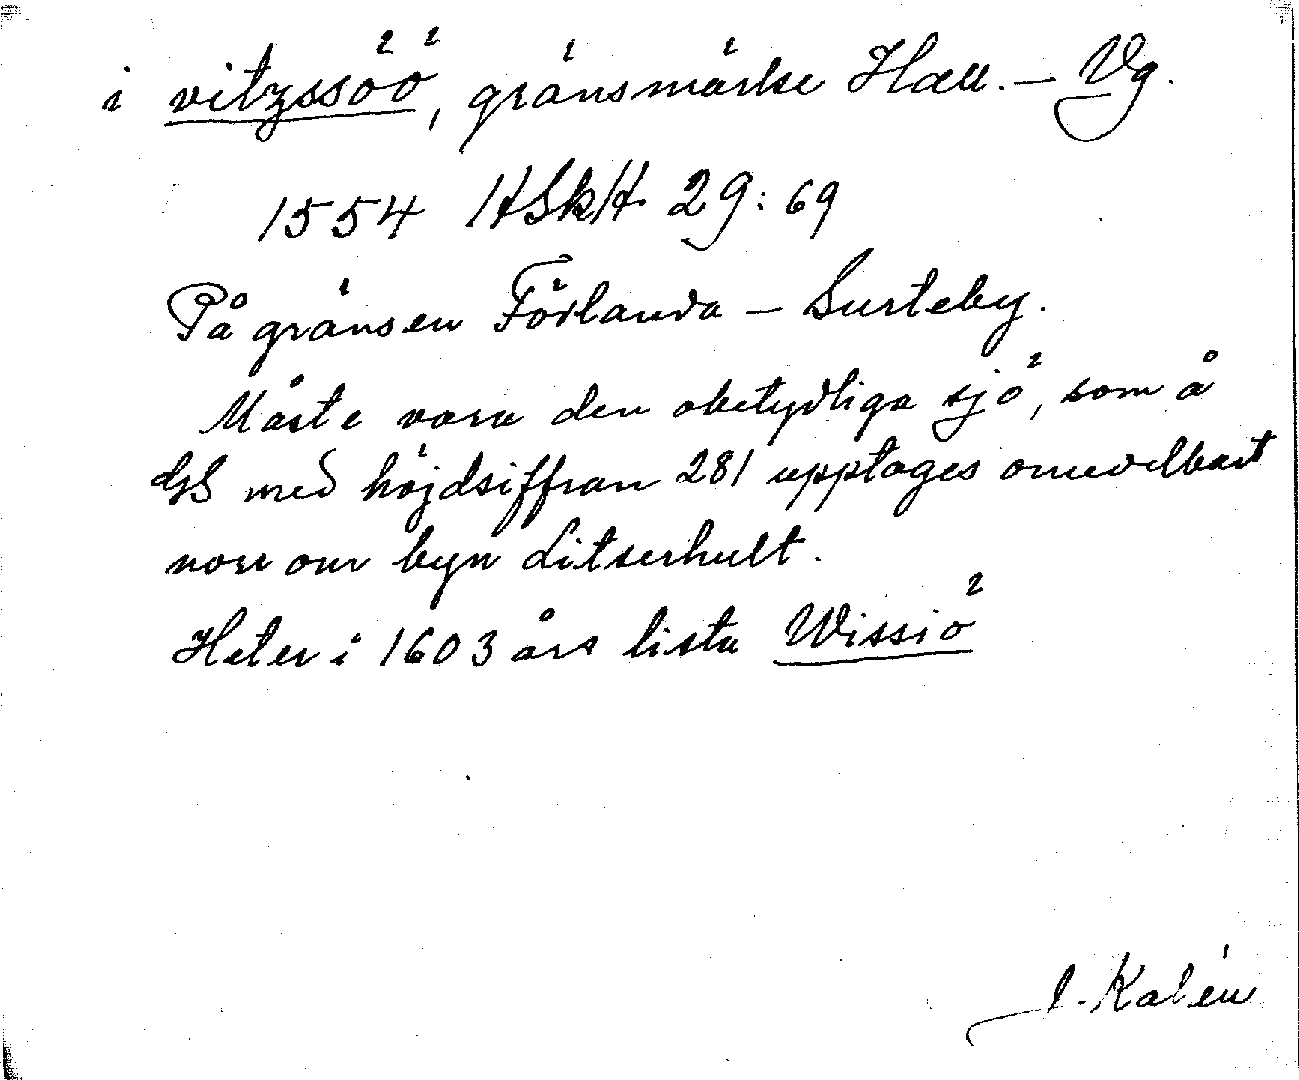 i vitzssöö, gränsmärke Hall. – Vg.
1554 HSkH 29:69
På gränsen Förlanda – Surteby.
Måste vara den obetydliga sjö, som å
GS med höjdsiffran 281 upptages omedelbart
norr om byn Litserhult.
Heter i 1603 års lista Wissiö
J. Kalén